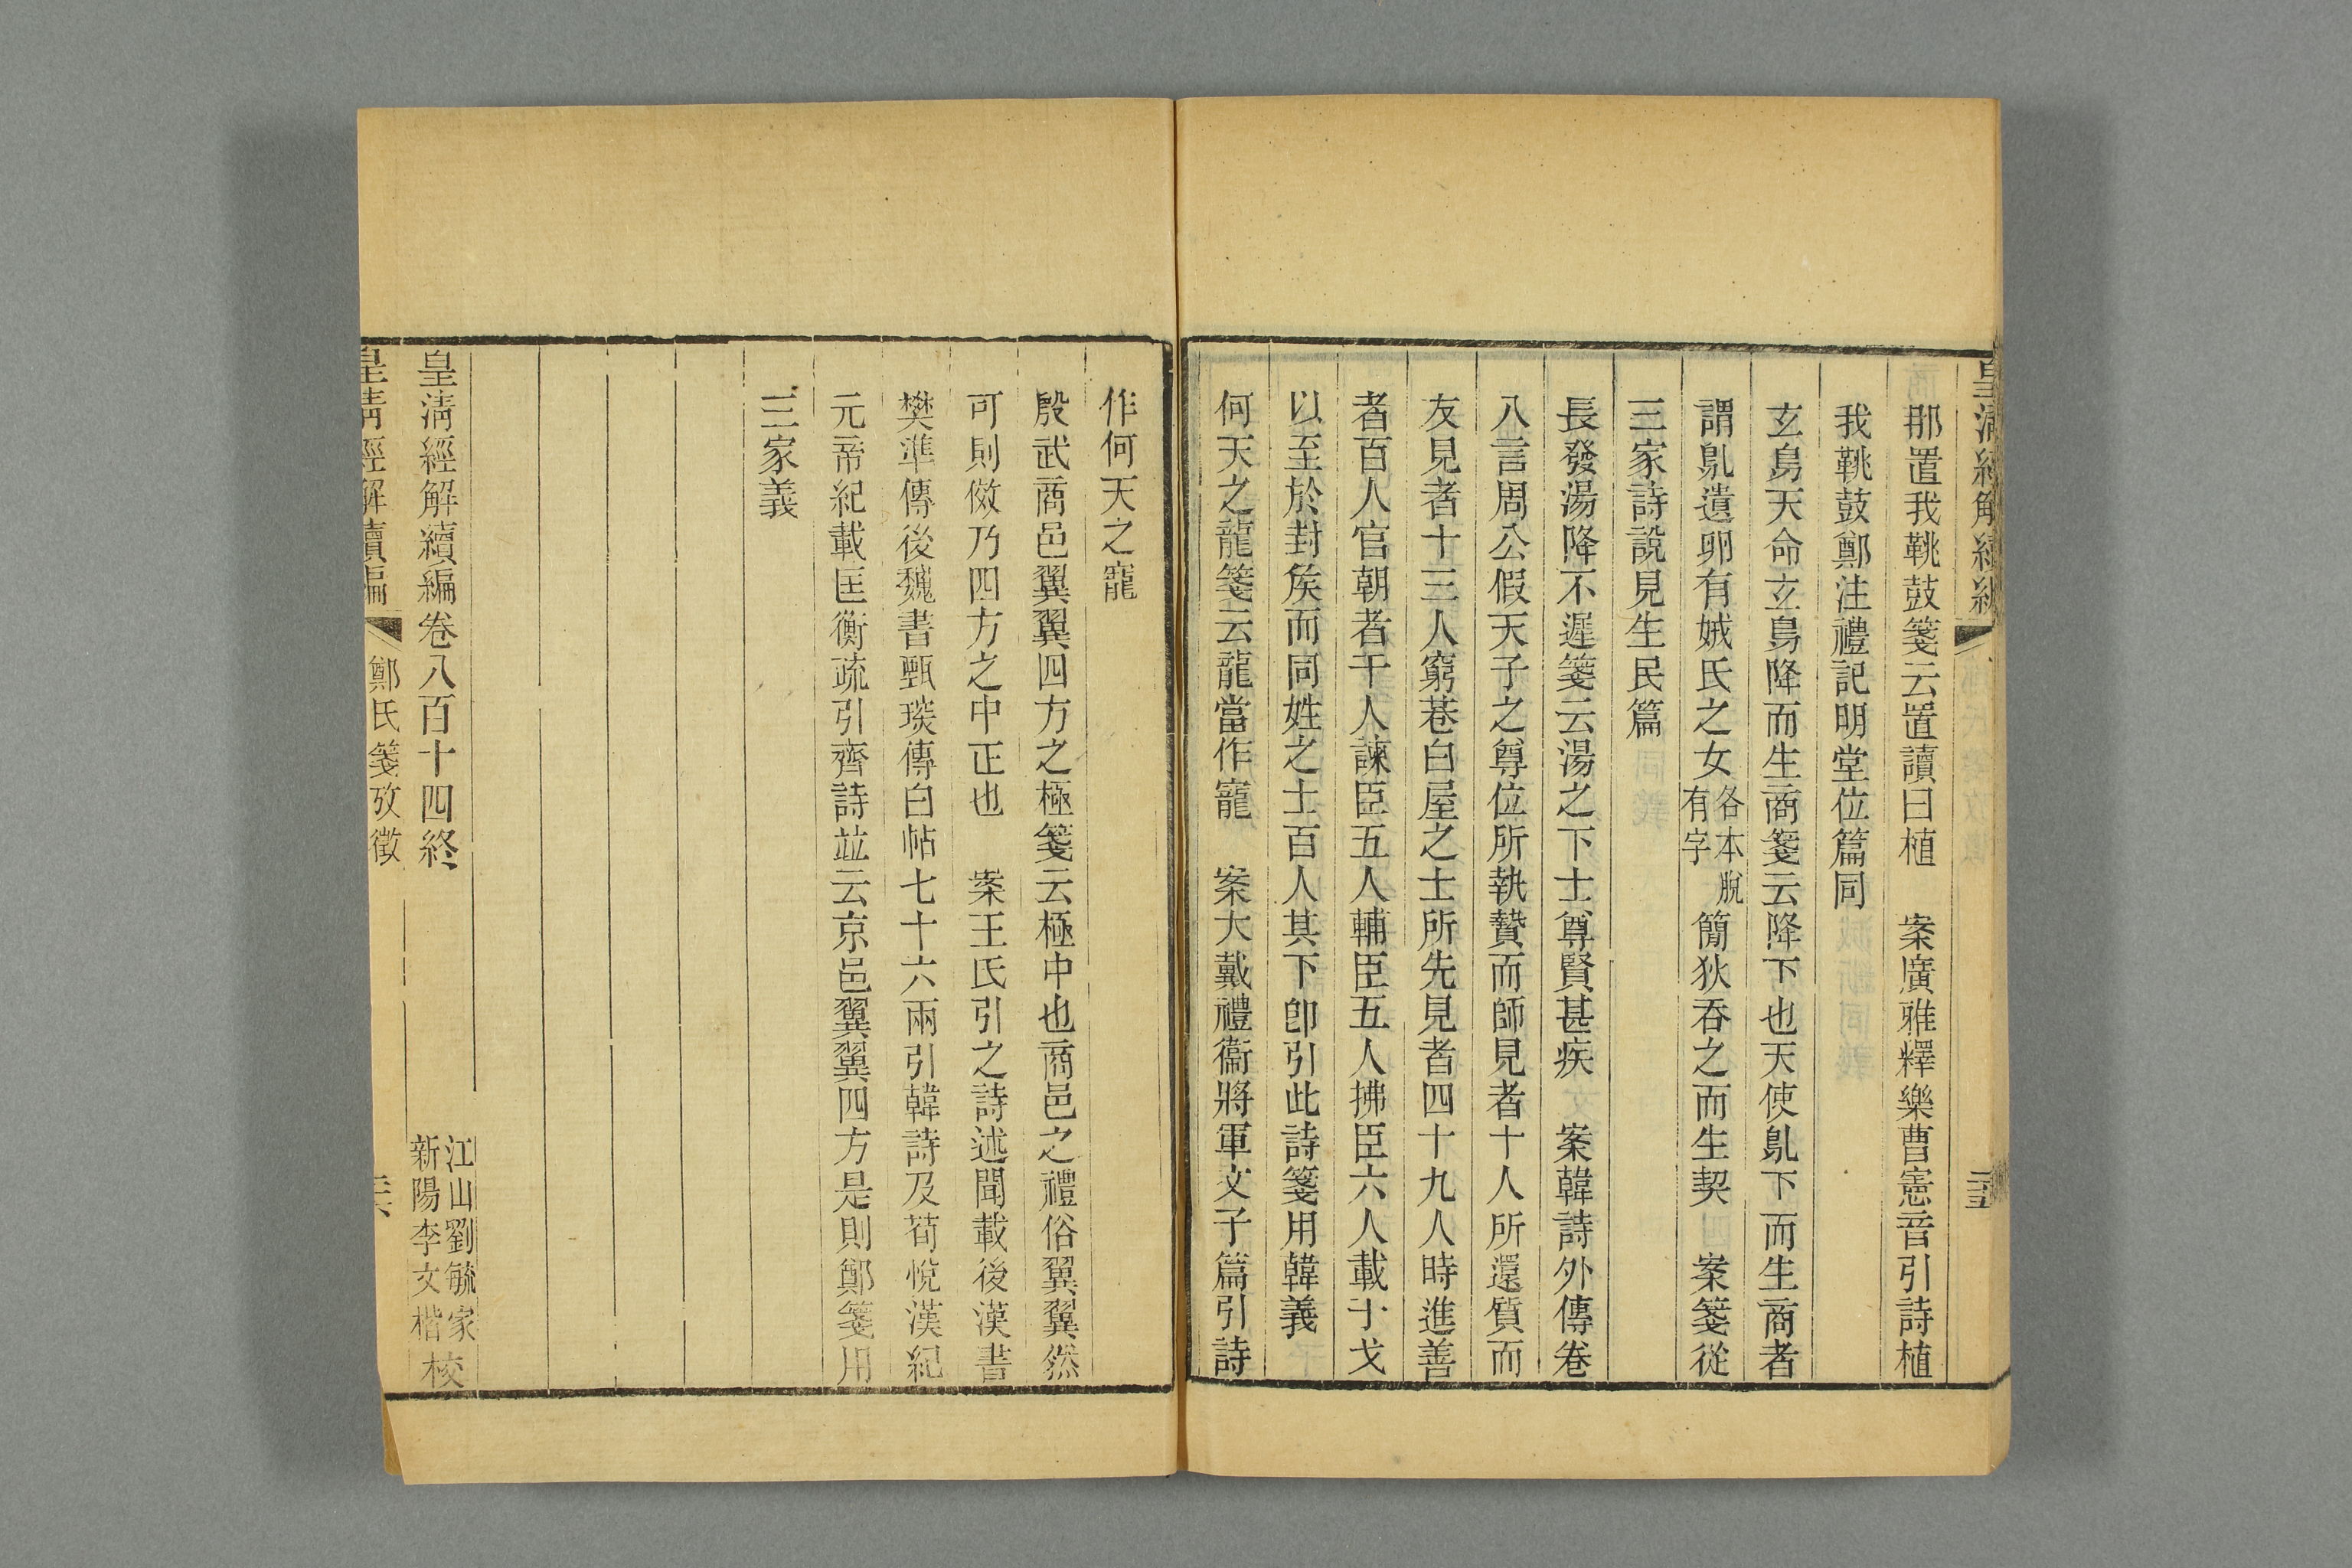 那置我鞉鼓箋云置讀曰植　案廣雅釋樂曹憲音引詩植
我鞉鼓鄭注禮記明堂位篇同
玄鳥天命玄鳥降而生商箋云降下也天使鳦下而生商者
謂鳦遺卵有娀氏之女各本脫有字簡狄吞之而生契　案箋從
三家詩說見生民篇
長發湯降不遲箋云湯之下士尊賢甚疾　案韓詩外傳卷
八言周公假天子之尊位所執贄而師見者十人所還質而
友見者十三人窮巷白屋之士所先見者四十九人時進善
者百人官朝者千人諫臣五人輔臣五人拂臣六人載干戈
以至於封矦而同姓之士百人其下卽引此詩箋用韓義
何天之龍箋云龍當作寵　案大戴禮衞將軍文子篇引詩
作何天之寵
殷武商邑翼翼四方之極箋云極中也商邑之禮俗翼翼然
可則傚乃四方之中正也　案王氏引之詩述聞載後漢書
樊準傳後魏書甄琰傳白帖七十六兩引韓詩及荀悅漢紀
元帝紀載匡衡疏引齊詩竝云京邑翼翼四方是則鄭箋用
三家義
皇淸經解續編卷八百十四終
江山劉毓家
新陽李文楷校
皇淸經解續編　鄭氏箋攷徵